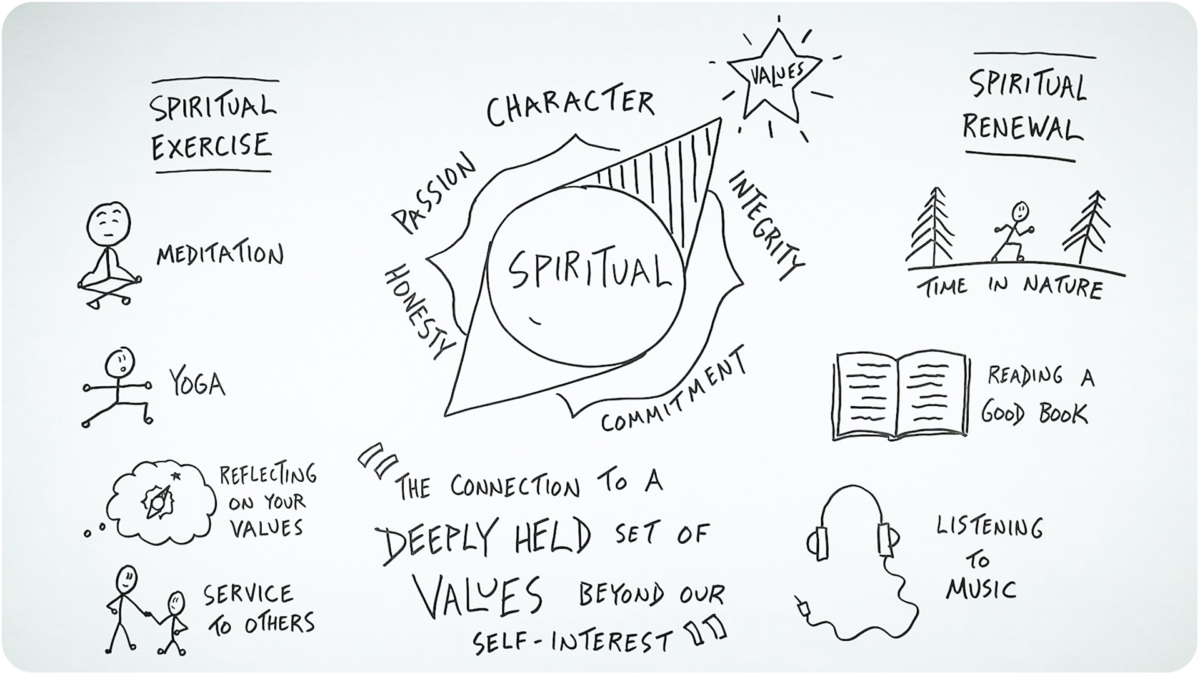 SPIRITUAL
EXERCISE
MEDITATION
YOGA
REFLECTING
ON YOUR
VALUES
SERVICE
TO OTHERS
VALUES
CHARACTER
PASSION
HONESTY
INTEGRITY
COMMITMENT
SPIRITUAL
"THE CONNECTION TO A
DEEPLY HELD SET OF
VALUES BEYOND OUR
SELF-INTEREST"
SPIRITUAL
RENEWAL
TIME IN NATURE
READING A
GOOD BOOK
LISTENING
TO
MUSIC